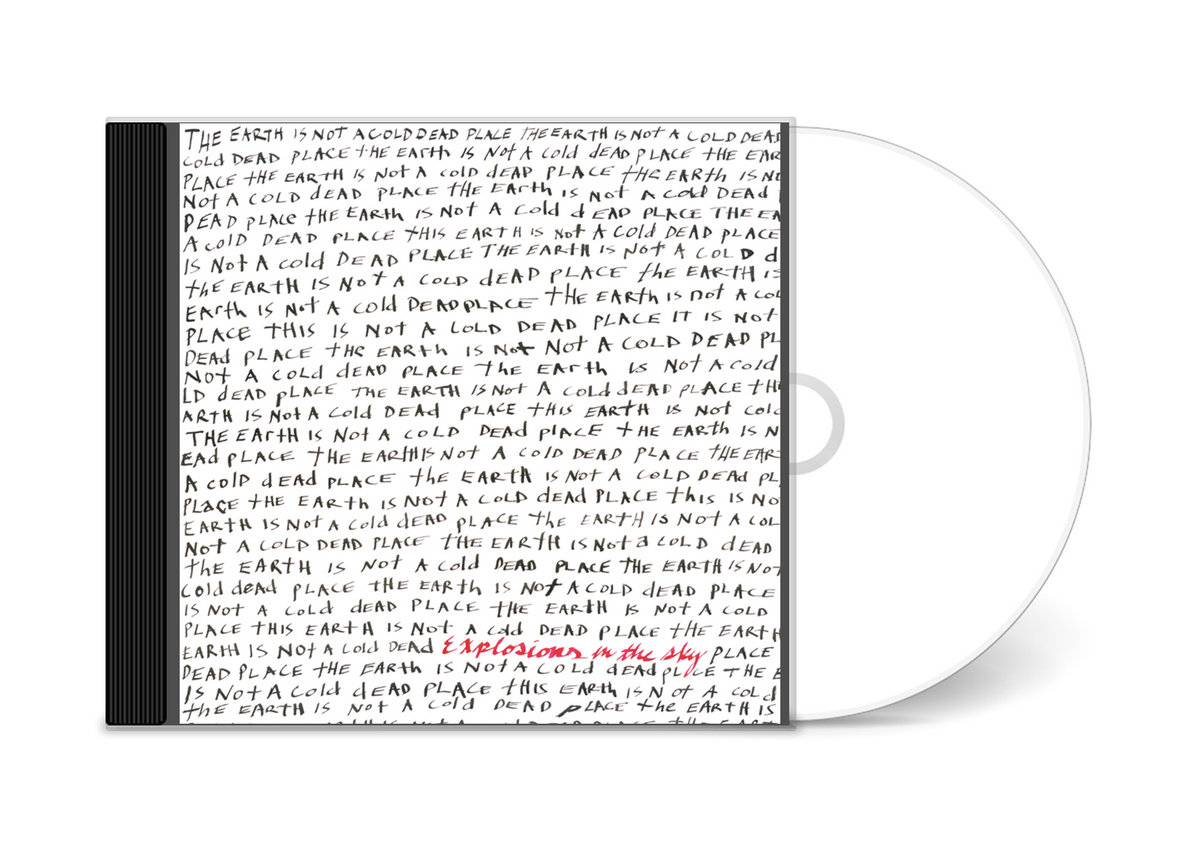 THE EARTH IS NOT A COLD DEAD PLACE THE EARTH IS NOT A COLD DEAD
COLD DEAD PLACE THE EARTH IS NOT A COLD DEAD PLACE THE EAR
PLACE THE EARTH IS NOT A COLD DEAD PLACE THE EARTH IS NO
NOT A COLD DEAD PLACE THE EARTH IS NOT A COLD DEAD
DEAD PLACE THE EARTH IS NOT A COLD DEAD PLACE THE EA
A COLD DEAD PLACE THIS EARTH IS NOT A COLD DEAD PLACE
IS NOT A COLD DEAD PLACE THE EARTH IS NOT A COLD d
the EARTH IS NOT A COLD DEAD PLACE the EARTH IS
EARTH IS NOT A COLD DEAD PLACE THE EARTH IS NOT A COL
PLACE THIS IS NOT A COLD DEAD PLACE IT IS NOT
DEAD PLACE THE EARTH IS NOT NOT A COLD DEAD PL
NOT A COLD DEAD PLACE THE EARTH IS NOT A COLD
LD DEAD PLACE THE EARTH IS NOT A COLD DEAD PLACE TH
ARTH IS NOT A COLD DEAD PLACE THIS EARTH IS NOT COLD
THE EARTH IS NOT A COLD DEAD PLACE THE EARTH IS N
EAD PLACE THE EARTH IS NOT A COLD DEAD PLACE THE EAR
A COLD DEAD PLACE the EARTH IS NOT A COLD DEAD PL
PLACE THE EARTH IS NOT A COLD DEAD PLACE this IS NO
EARTH IS NOT A COLD DEAD PLACE The EARTH IS NOT A COL
NOT A COLD DEAD PLACE THE EARTH IS NOT a COLD DEAD
the EARTH IS NOT A COLD DEAD PLACE THE EARTH IS NOT
COLD dead PLACE THE EARTH IS NOT A COLD DEAD PLACE
IS NOT A COLD DEAD PLACE THE EARTH IS NOT A COLD
PLACE THIS EARTH IS NOT A COLD DEAD PLACE THE EARTH
EARTH IS NOT A COLD DEAD Explosions in the sky PLACE
DEAD PLACE THE EARTH IS NOT A COLD DEAD PLACE THE E
IS NOT A COLD DEAD PLACE THIS EARTH IS NOT A COLD
the EARTH IS NOT A COLD DEAD PLACE the EARTH IS